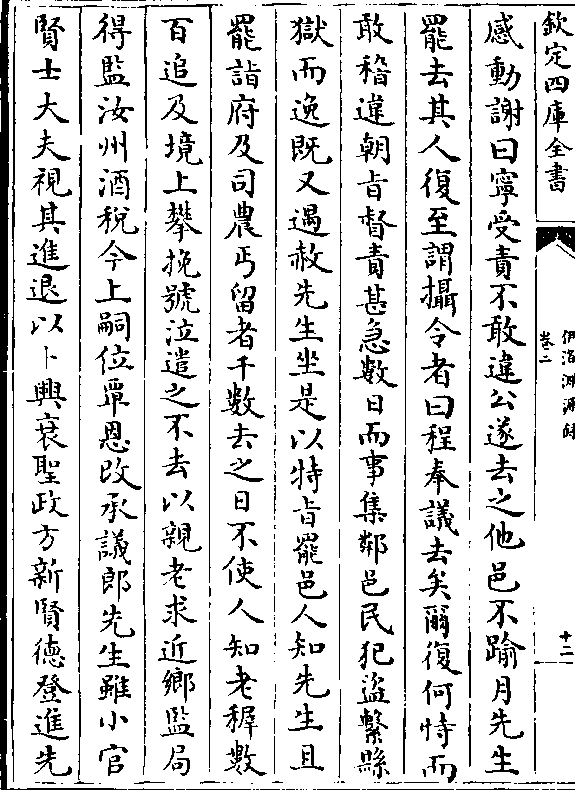 欽定四庫全書
伊洛淵源録
卷二
十二
感動謝曰寧受責不敢違公遂去之他邑不踰月先生
罷去其人復至謂攝令者曰程奉議去矣爾復何恃而
敢稽違朝旨督責甚急數日而事集鄰邑民犯盜繫縣
獄而逸既又遇赦先生坐是以特旨罷邑人知先生且
罷詣府及司農丐留者千數去之日不使人知老穉數
百追及境上攀挽號泣遣之不去以親老求近鄉監局
得監汝州酒稅今上嗣位覃恩改承議郎先生雖小官
賢士大夫視其進退以卜興衰聖政方新賢德登進先